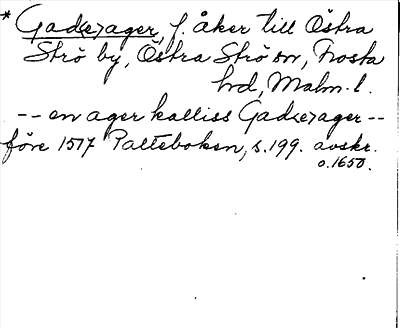 * Gad(e)ager, f. åker till Östra
Strö by, Östra Strö sn, Frosta
hrd, Malm. l.
-- en ager kalliss Gad(e)ager --
före 1517 Palteboken, s. 199. avskr.
o. 1650.